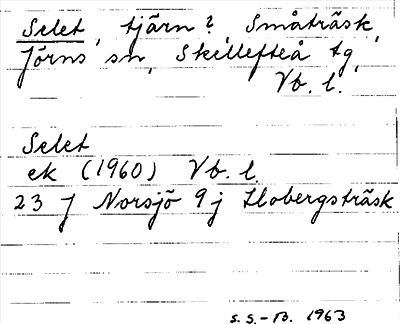 Selet, tjärn?, Småträsk,
Jörns sn, Skellefteå tg,
Vb. l.
Selet
ek (1960) Vb. l.
23 J Norsjö 9 j Holbergsträsk
S. S.-B. 1963